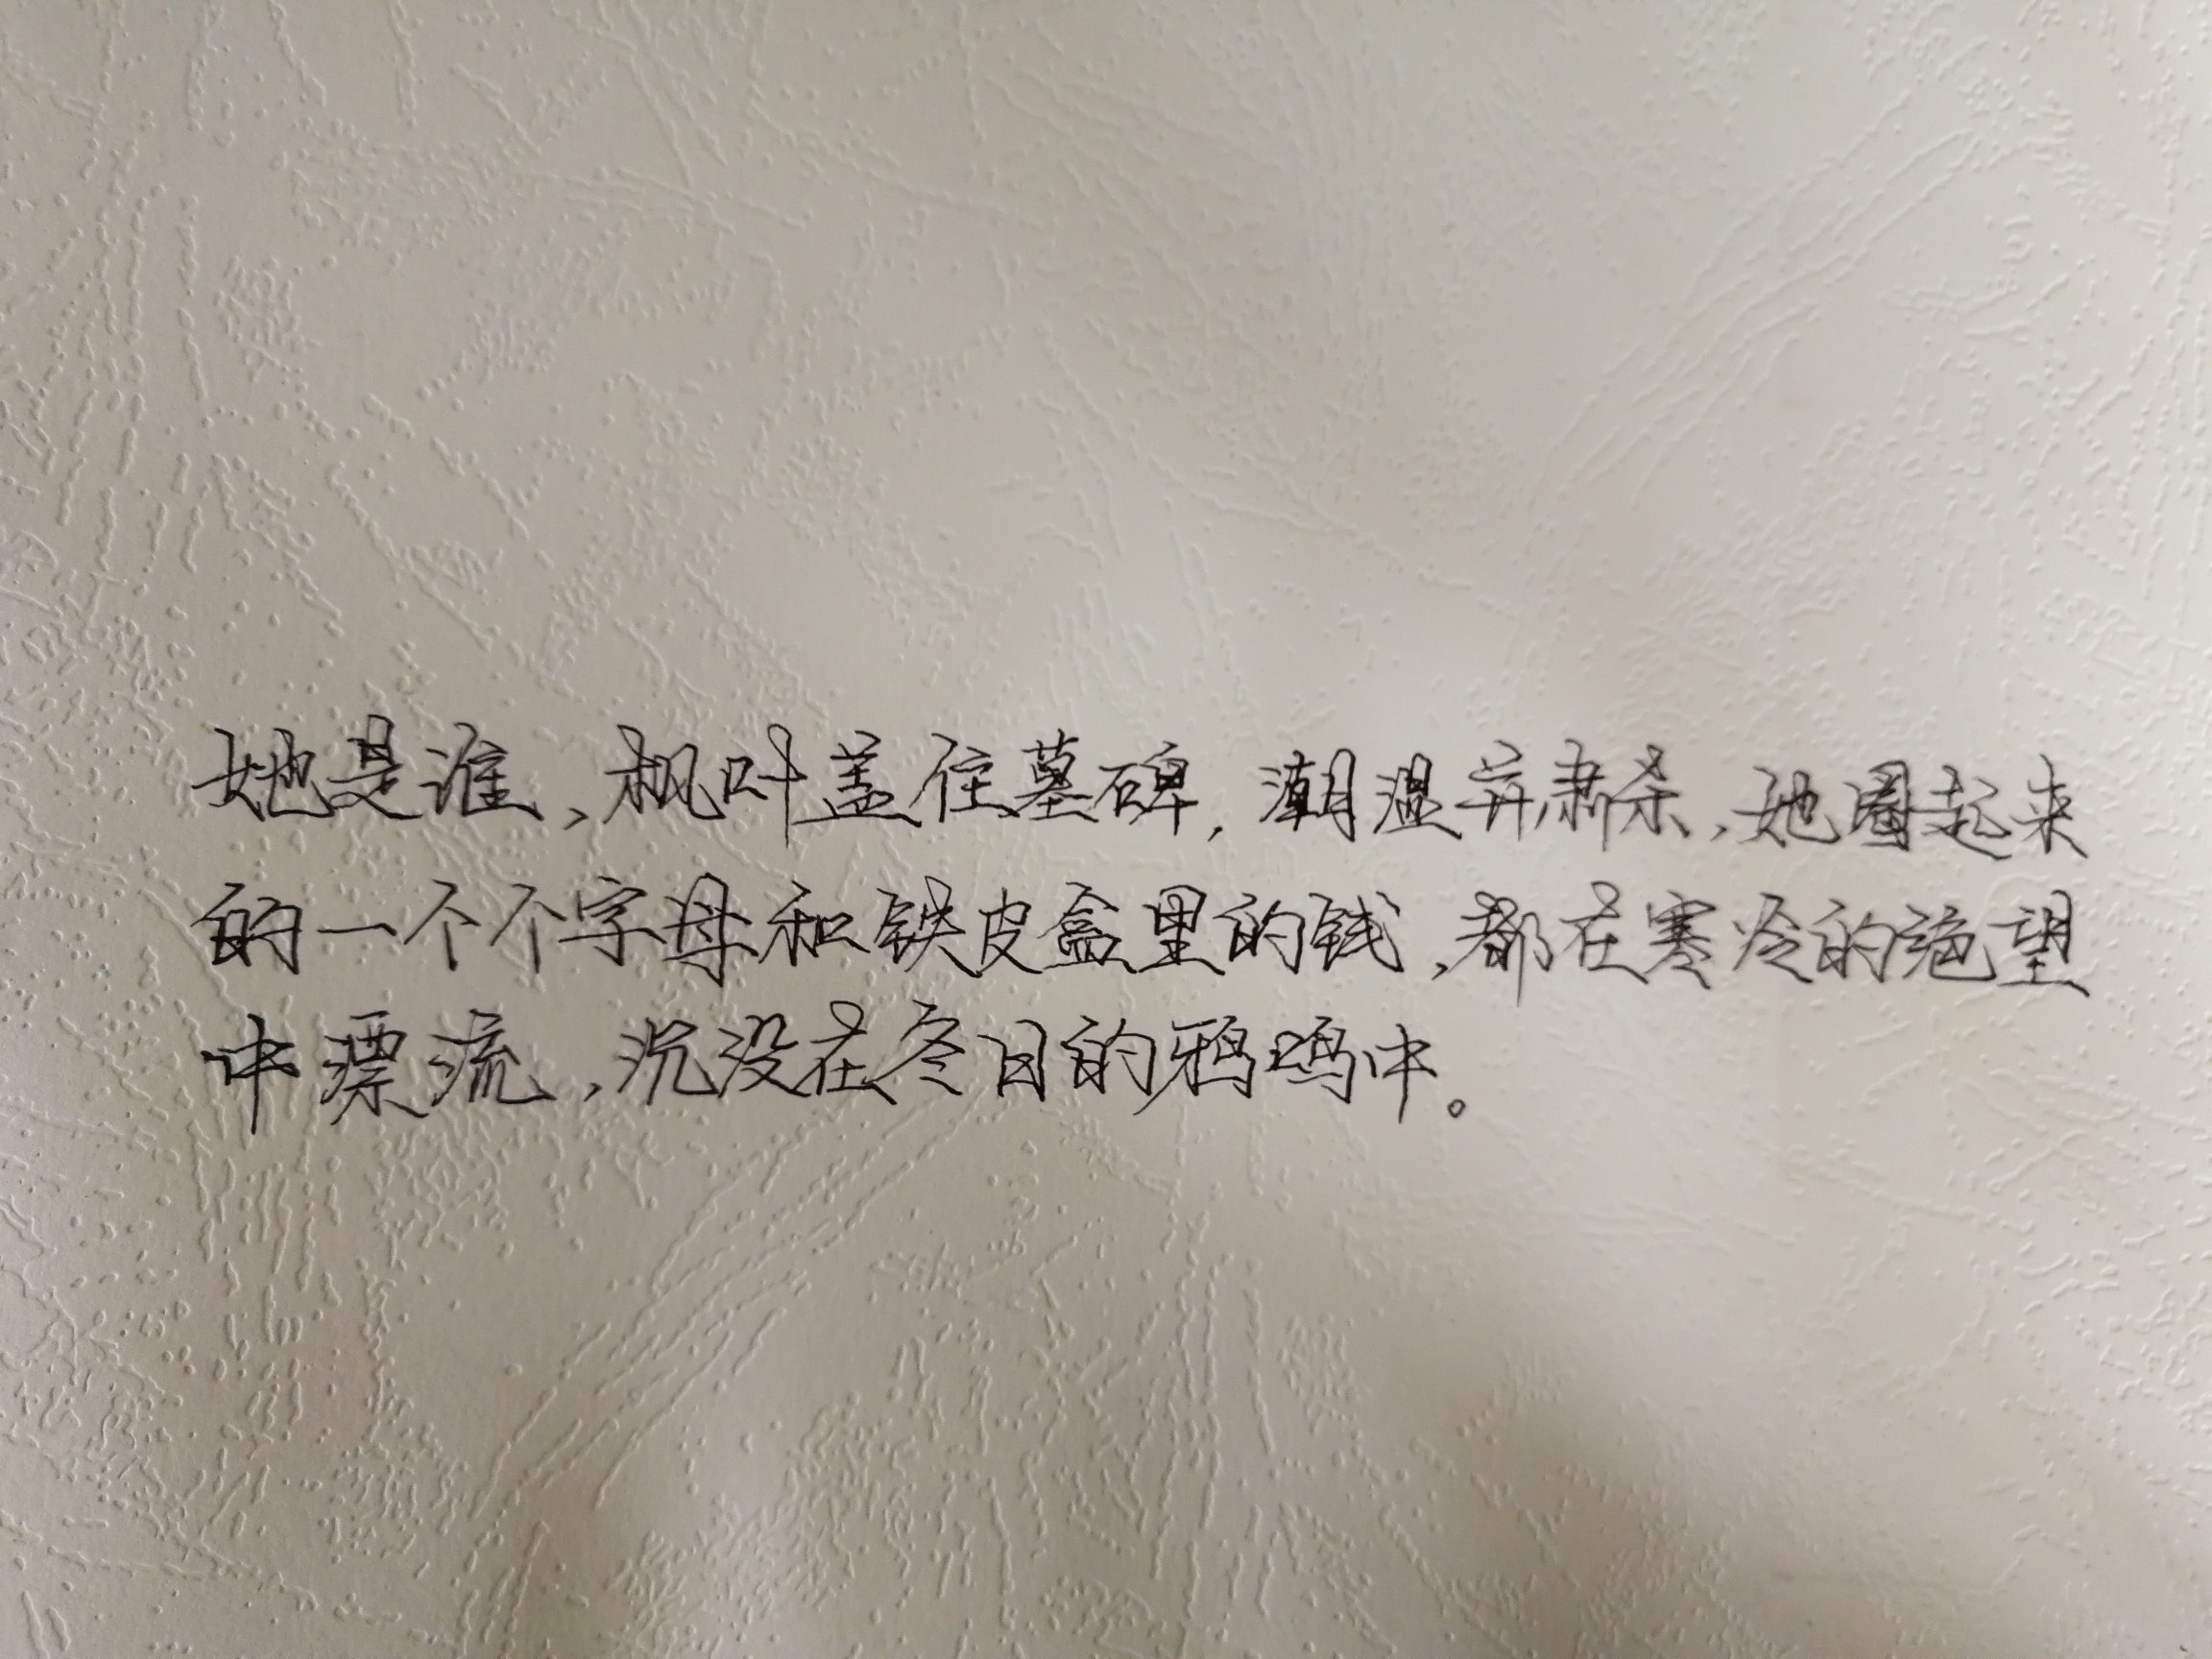 她是谁,枫叶盖住墓碑,潮湿并肃杀,她圈起来
的一个个字母和铁皮盒里的钱,都在寒冷的绝望
中漂流,沉没在冬日的鸦鸣中。